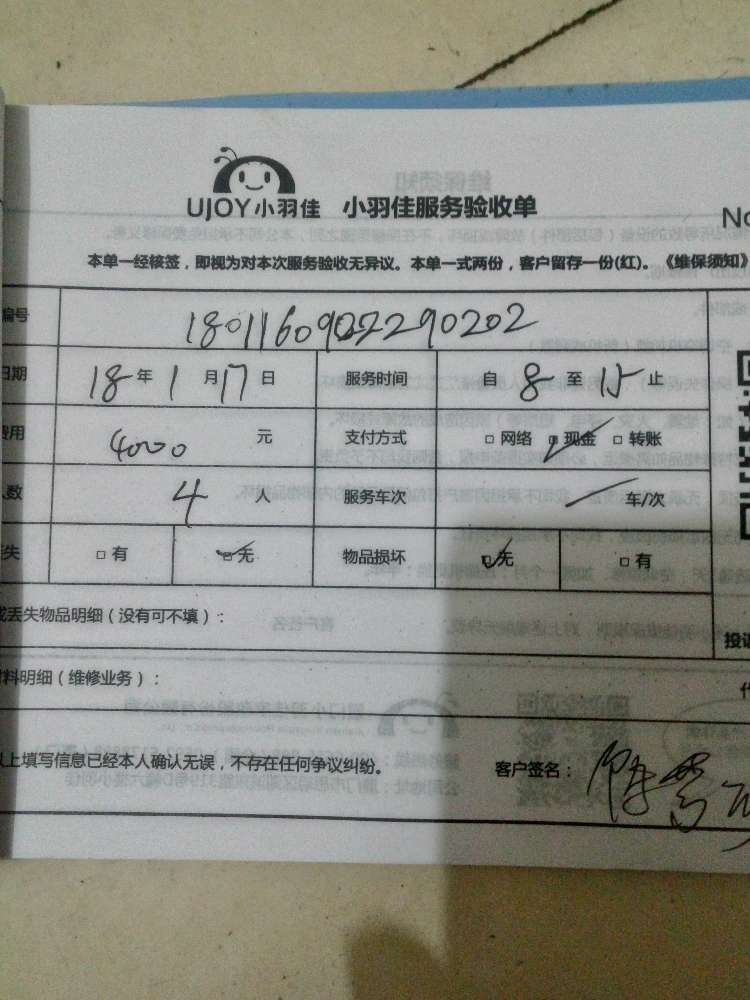 UJOY小羽佳 小羽佳服务验收单
No
本单一经核签，即视为对本次服务验收无异议。本单一式两份，客户留存一份(红)。《维保须知》
编号 1801160902290202
日期 18年1月17日 服务时间 自8至15止
费用 4000元 支付方式 □网络 ☑现金 □转账
人数 4人 服务车次 / 车/次
失 □有 ☑无 物品损坏 ☑无 □有
或丢失物品明细（没有可不填）：
投诉
材料明细（维修业务）：
以上填写信息已经本人确认无误，不存在任何争议纠纷。 客户签名：